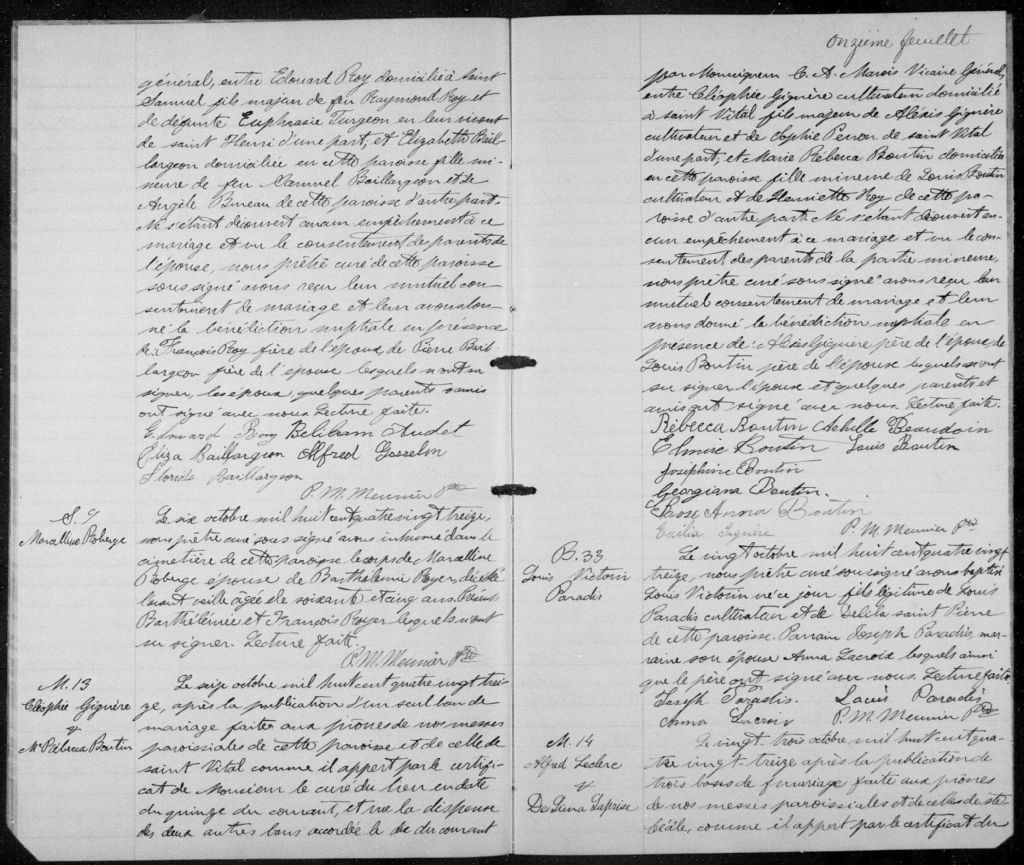 général, entre Edouard Roy domicilié à Saint
Samuel fils majeur de feu Raymond Roy et
de défunte Euphrasie Turgeon en leur vivant
de saint Henri d'une part; et Elizabeth Bail-
largeon domiciliée en cette paroisse fille mi-
neure de feu Samuel Baillargeon et de
Angèle Bureau de cette paroisse d'autre part.
Ne s'étant découvert aucun empêchement à ce
mariage et vu le consentement des parents de
l'épouse, nous prêtre curé de cette paroisse
soussigné avons reçu leur mutuel con-
sentement de mariage et leur avons don-
né la bénédiction nuptiale en présence
de François Roy frère de l'époux, de Pierre Bail-
largeon frère de l'épouse lesquels n'ont su
signer, les époux, quelques parents & amis
ont signé avec nous. Lecture faite.
Edouard Roy Audet
Eliza Baillargeon Alfred Gosselin
Florida Baillargeon
P. M. Meunier Ptre
S. 7
Marcelline Roberge
Le six octobre mil huit cent quatre vingt treize,
nous prêtre curé soussigné avons inhumé dans le
cimetière de cette paroisse le corps de Marcelline
Roberge épouse de Barthélemi Royer, décédée
âgée de soixante et cinq ans. Présents
Barthélémie et François Royer lesquels n'ont
su signer. Lecture faite
P. M. Meunier Ptre
M. 13
Cléophée Giguère
&
Me Rébecca Boutin
Le seize octobre mil huit cent quatre vingt trei-
ze, après la publication d'un seul ban de
mariage faite aux prônes de nos messes
paroissiales de cette paroisse et de celle de
saint Vital comme il appert par le certifi-
cat de Monsieur le curé du lieu en date
du quinze du courant, et vu la dispense
des deux autres bans accordée le du courant
Onzième feuillet
par Monseigneur C. A. Marois Vicaire Général,
entre Cléophée Giguère cultivateur domicilié
à saint Vital fils majeur de Alexis Giguère
cultivateur et de Sophie de saint Vital
d'une part; et Marie Rébecca Boutin domiciliée
en cette paroisse fille mineure de Louis Boutin
cultivateur et de Henriette Roy de cette pa-
roisse d'autre part. Ne s'étant découvert au-
cun empêchement à ce mariage et vu le con-
sentement des parents de la partie mineure,
nous prêtre curé soussigné avons reçu leur
mutuel consentement de mariage et leur
avons donné la bénédiction nuptiale en
présence de Alexis Giguère, père de l'époux, de
Louis Boutin père de l'épouse lesquels n'ont
su signer l'épouse et quelques parents et
amis ont signé avec nous Lecture faite.
Rébecca Boutin Achille Beaudoin
Elmire Boutin Louis Boutin
Joséphine Boutin
Georgiana Boutin.
Anora Boutin
Giguère P. M. Meunier Ptre
B. 33
Louis Victorin
Paradis
Le vingt octobre mil huit cent quatre vingt
treize, nous prêtre curé soussigné avons baptisé
Louis Victorin né ce jour fils légitime de Louis
Paradis cultivateur et de Delila saint Pierre
de cette paroisse. Parrain Joseph Paradis, mar-
raine son épouse Anna Lacroix lesquels ainsi
que le père ont signé avec nous. Lecture faite
Joseph Paradis. Louis Paradis
Anna Lacroix P. M. Meunier Ptre
M. 14
Alfred Leclerc
&
Laprise
Le vingt-trois octobre mil huit cent qua-
tre vingt-treize après la publication de
trois bans de mariage faite aux prônes
de nos messes paroissiales et de celles de ste
Cécile, comme il appert par le certificat du